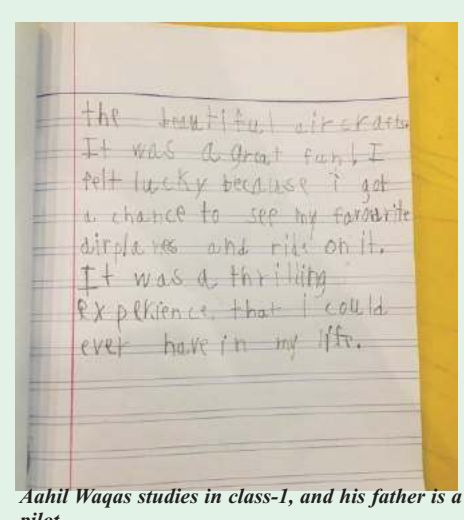 the beautiful aircrafts.
It was a great fun! I
felt lucky because i got
a chance to see my favourite
airplanes and ride on it.
It was a thrilling
experience that i could
ever have in my life.
Aahil Waqas studies in class-1, and his father is a
pilot